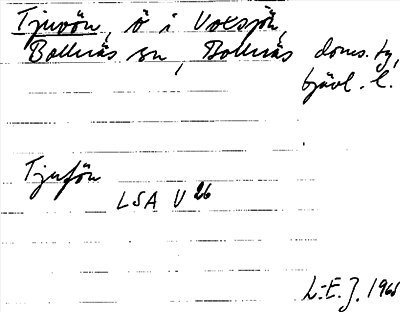 Tjuvön, ö i Voxsjön,
Bollnäs sn, Bollnäs doms. tg,
Gävl. l.
Tjufön
LSA U 26
L-E. J. 196